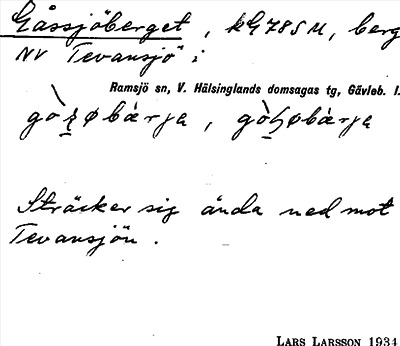 Gåssjöberget, kG785M, berg
NV Tevansjö i
Ramsjö sn, V. Hälsinglands domsagas tg, Gävleb. l.
Sträcker sig ända ned mot
Tevansjön.
LARS LARSSON 1934